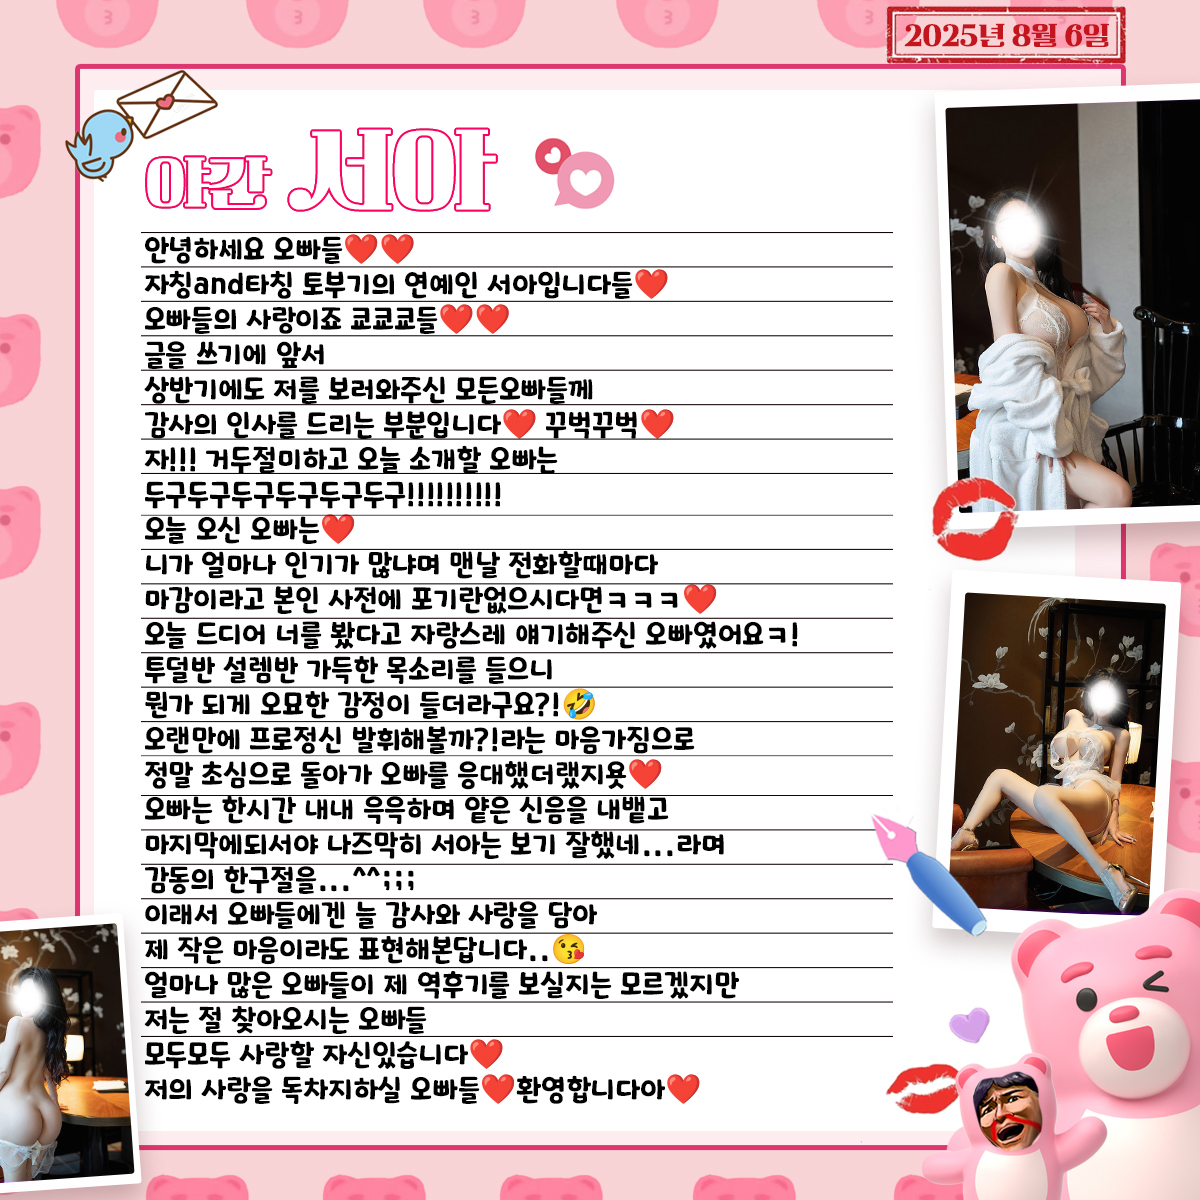 2025년 8월 6일
야간 서아
안녕하세요 오빠들❤️❤️
자칭and타칭 토부기의 연예인 서아입니다들❤️
오빠들의 사랑이죠 쿄쿄쿄들❤️❤️
글을 쓰기에 앞서
상반기에도 저를 보러와주신 모든오빠들께
감사의 인사를 드리는 부분입니다❤️ 꾸벅꾸벅❤️
자!!! 거두절미하고 오늘 소개할 오빠는
두구두구두구두구두구두구!!!!!!!!!!
오늘 오신 오빠는❤️
니가 얼마나 인기가 많냐며 맨날 전화할때마다
마감이라고 본인 사전에 포기란없으시다면ㅋㅋㅋ❤️
오늘 드디어 너를 봤다고 자랑스레 얘기해주신 오빠였어요ㅋ!
투덜반 설렘반 가득한 목소리를 들으니
뭔가 되게 오묘한 감정이 들더라구요?!🤣
오랜만에 프로정신 발휘해볼까?!라는 마음가짐으로
정말 초심으로 돌아가 오빠를 응대했더랬지욧❤️
오빠는 한시간 내내 윽윽하며 얕은 신음을 내뱉고
마지막에되서야 나즈막히 서아는 보기 잘했네...라며
감동의 한구절을...^^;;;
이래서 오빠들에겐 늘 감사와 사랑을 담아
제 작은 마음이라도 표현해본답니다..😘
얼마나 많은 오빠들이 제 역후기를 보실지는 모르겠지만
저는 절 찾아오시는 오빠들
모두모두 사랑할 자신있습니다❤️
저의 사랑을 독차지하실 오빠들❤️환영합니다아❤️